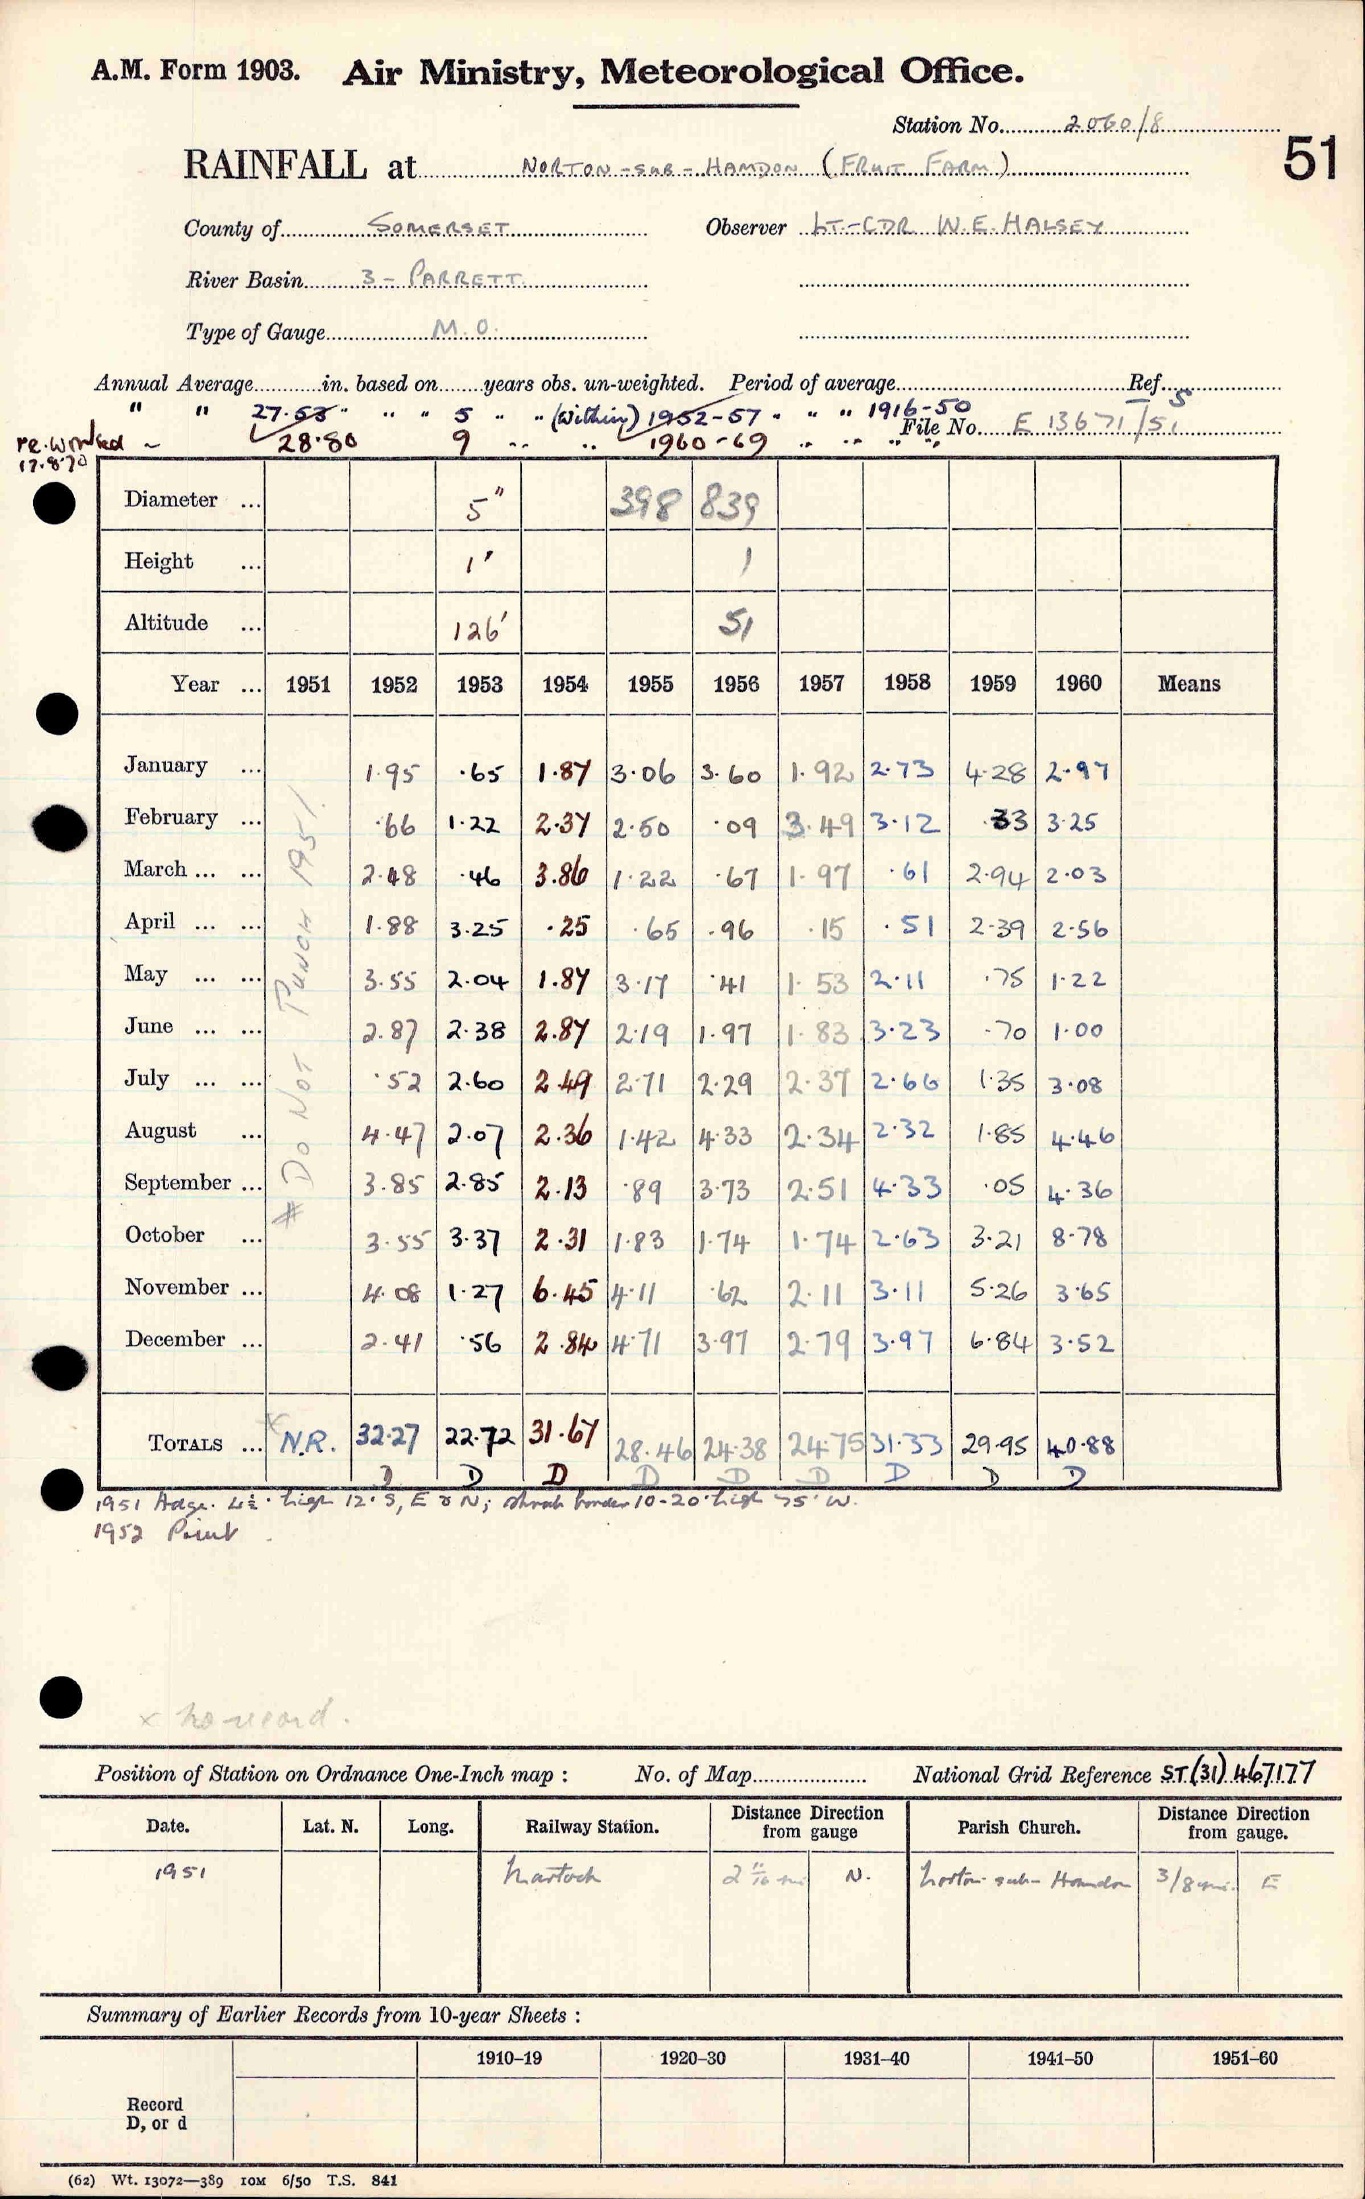 A.M. Form 1903. Air Ministry, Meteorological Office.
Station No. 2060/8
51
RAINFALL at NORTON-SUB-HAMDON (FRUIT FARM)
County of SOMERSET Observer LT.-CDR W.E. HALSEY
River Basin 3 - PARRETT
Type of Gauge M.O.
Annual Average in. based on years obs. un-weighted. Period of average Ref. 5
" " 27.53 " " " 5 " " (Within) 1952-57 " " " 1916-50
File No. E 13671/51
re-worked 28.80 9 " " 1960-69 " " " "
17.8.70
Diameter ... 5" 398 839
Height ... 1' 1
Altitude ... 126' 51
Year ... 1951 1952 1953 1954 1955 1956 1957 1958 1959 1960 Means
January ... 1.95 .65 1.87 3.06 3.60 1.92 2.73 4.28 2.97
February ... .66 1.22 2.37 2.50 .09 3.49 3.12 .33 3.25
March ... ... 2.48 .46 3.86 1.22 .67 1.97 .61 2.94 2.03
April ... ... 1.88 3.25 .25 .65 .96 .15 .51 2.39 2.56
May ... ... 3.55 2.04 1.87 3.17 .41 1.53 2.11 .75 1.22
June ... ... 2.87 2.38 2.87 2.19 1.97 1.83 3.23 .70 1.00
July ... ... .52 2.60 2.49 2.71 2.29 2.37 2.66 1.35 3.08
August ... 4.47 2.07 2.36 1.42 4.33 2.34 2.32 1.85 4.46
September ... 3.85 2.85 2.13 .89 3.73 2.51 4.33 .05 4.36
October ... 3.55 3.37 2.31 1.83 1.74 1.74 2.63 3.21 8.78
November ... 4.08 1.27 6.45 4.11 .62 2.11 3.11 5.26 3.65
December ... 2.41 .56 2.84 4.71 3.97 2.79 3.97 6.84 3.52
# DO NOT PUNCH 1951.
TOTALS ... x N.R. 32.27 22.72 31.67 28.46 24.38 24.75 31.33 29.95 40.88
D D D D D D D D D
1951 Hdge. 4½' high 12' S, E & N; shrub border 10-20' high 75' W.
1952 Point
x no record.
Position of Station on Ordnance One-Inch map : No. of Map National Grid Reference ST(31) 467177
Date. Lat. N. Long. Railway Station. Distance Direction from gauge Parish Church. Distance Direction from gauge.
1951 Martock 2 11/16 mi N. Norton-sub-Hamdon 3/8 mi. E
Summary of Earlier Records from 10-year Sheets :
1910–19 1920–30 1931–40 1941–50 1951–60
Record
D, or d
(62) Wt. 13072—389 10M 6/50 T.S. 841